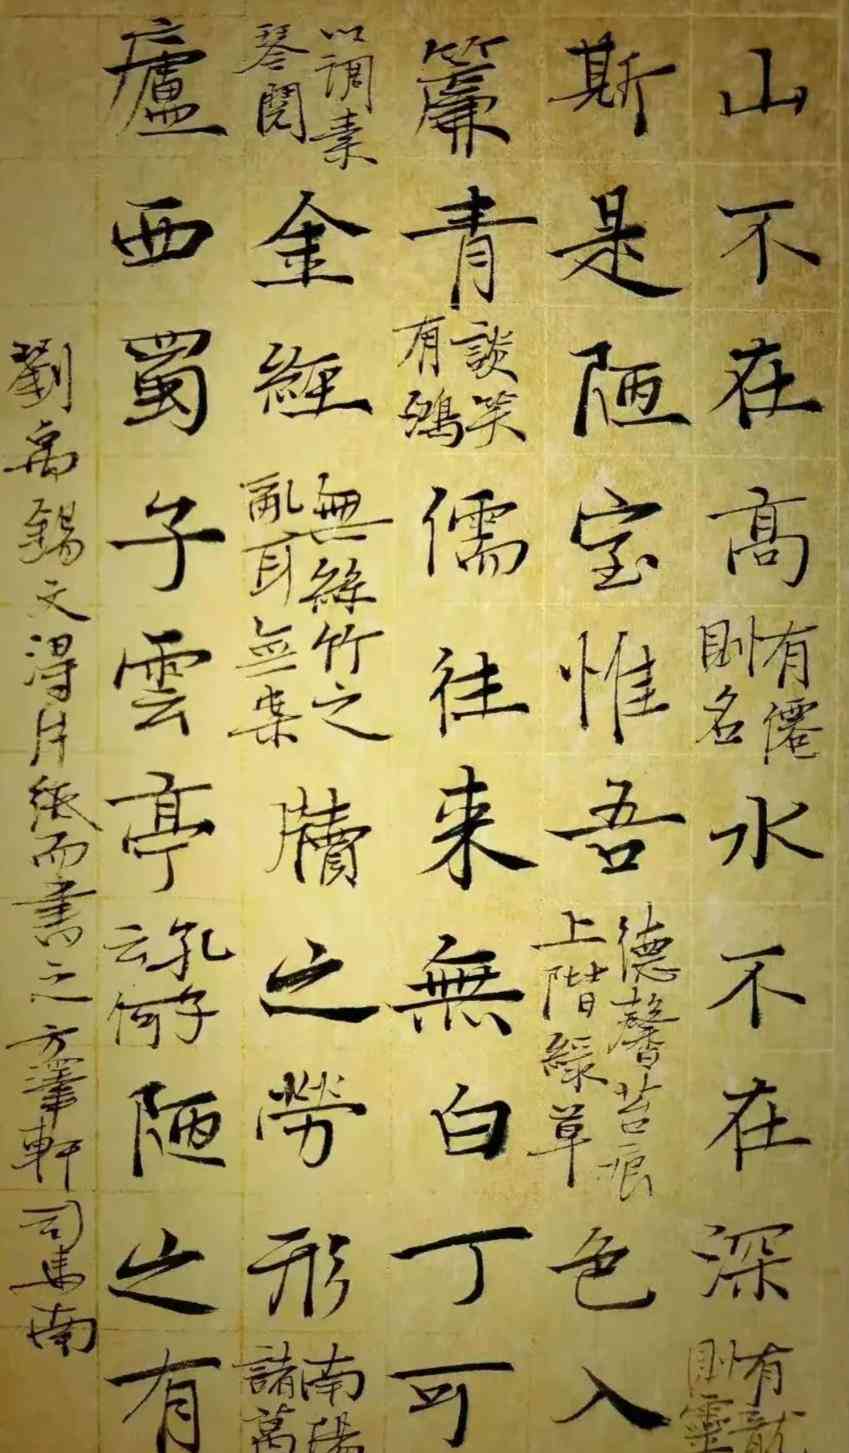 山不在高有僊則名水不在深有龍則靈
斯是陋室惟吾德馨苔痕上階綠草色入
簾青談笑有鴻儒往来無白丁可
以調素琴閱金經無絲竹之亂耳無案牘之勞形南陽諸葛
廬西蜀子雲亭孔子云何陋之有
劉禹錫文淂片紙而書之方澤軒司馬南